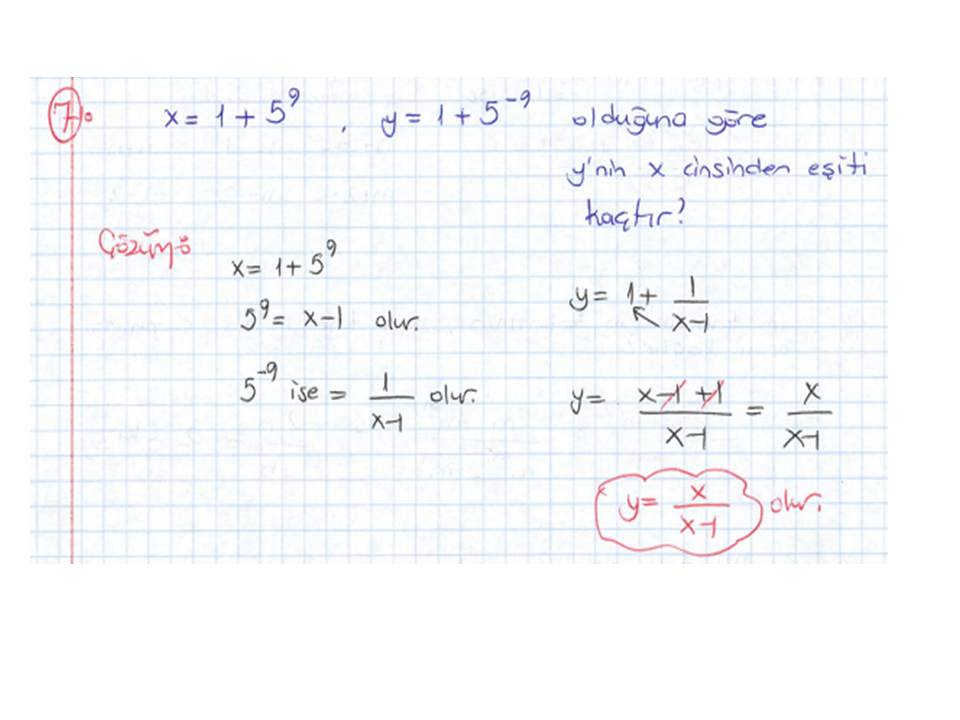 7. x = 1 + 5⁹ , y = 1 + 5⁻⁹ olduğuna göre
y'nin x cinsinden eşiti
kaçtır?
Çözüm:
x = 1 + 5⁹
5⁹ = x-1 olur.
5⁻⁹ ise = 1/(x-1) olur.
y = 1 + 1/(x-1)
y = (x-1+1)/(x-1) = x/(x-1)
y = x/(x-1) olur.